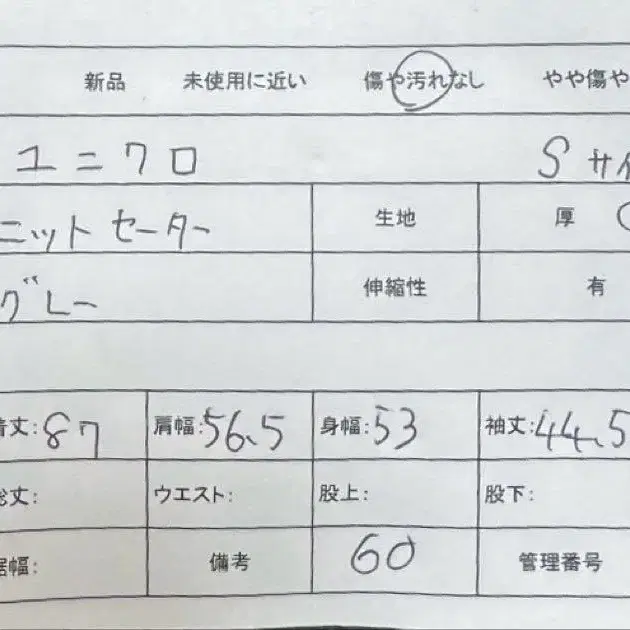 新品 未使用に近い 傷や汚れなし やや傷や
ユニクロ Sサイ
ニットセーター 生地 厚
グレー 伸縮性 有
着丈:87 肩幅:56.5 身幅:53 袖丈:44.5
総丈: ウエスト: 股上: 股下:
裾幅: 備考 60 管理番号